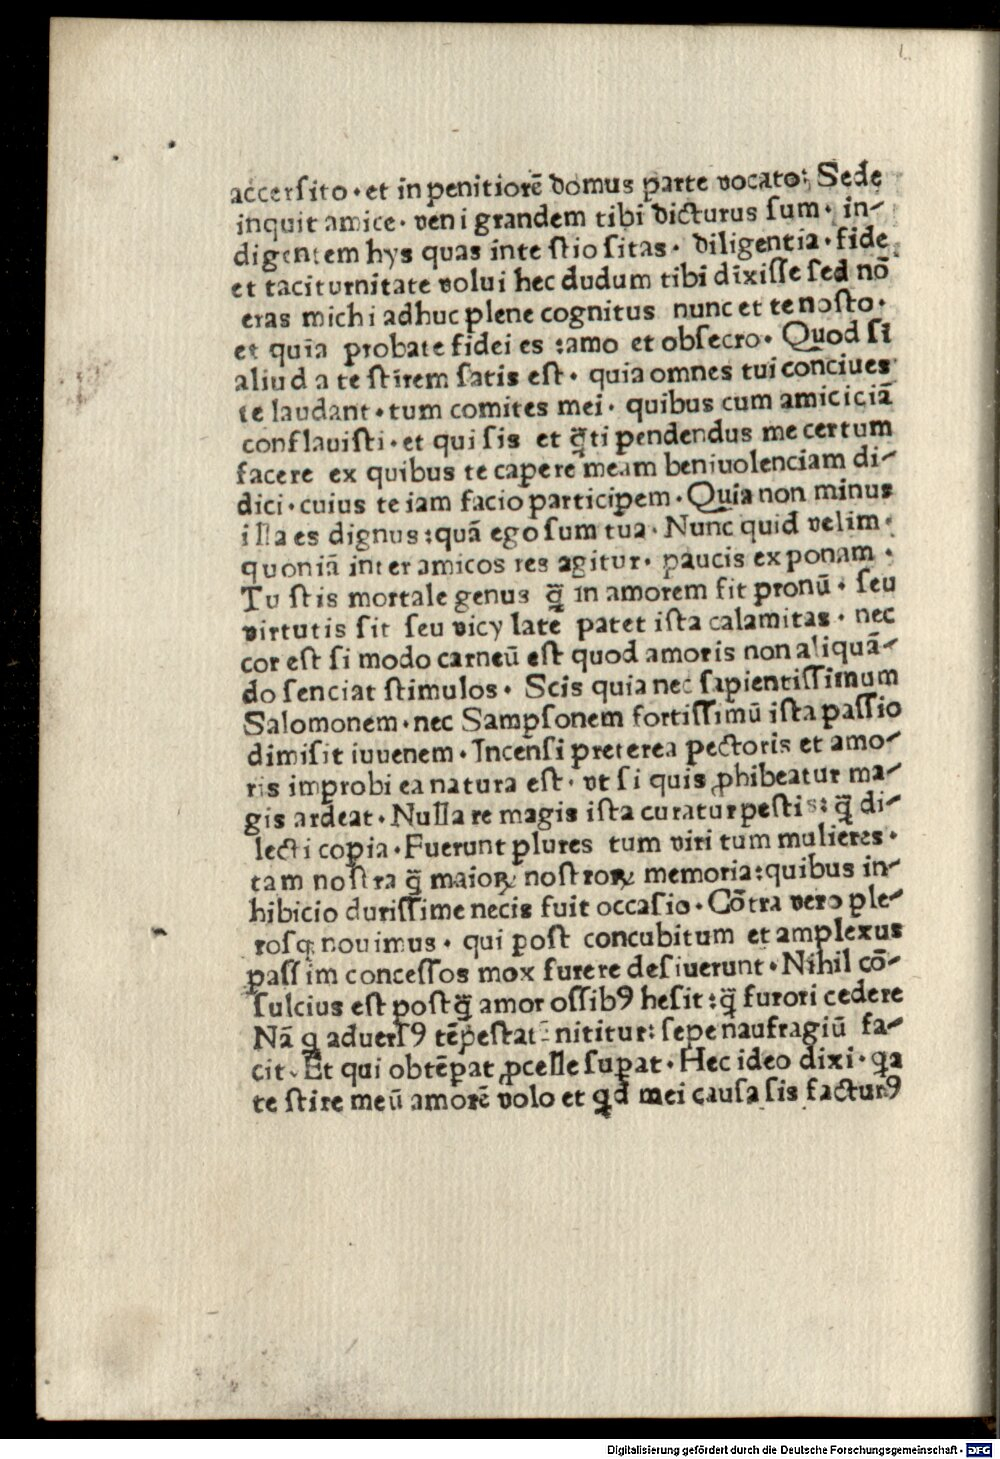 accersito · et in penitiorē domus parte vocato: Sede
inquit amice · veni grandem tibi dicturus sum · in-
digentem hys quas inte stio sitas · diligentia · fide
et taciturnitate volui hec dudum tibi dixiſſe sed nō
eras michi adhuc plene cognitus nunc et te nosto ·
et quia probate fidei es :amo et obſecro · Quod ſi
aliud a te ſtirem ſatis eſt · quia omnes tui conciues
te laudant · tum comites mei · quibus cum amiciciā
conflauiſti · et qui ſis et q̄ti pendendus me certum
facere ex quibus te capere meam beniuolenciam di-
dici · cuius te iam facio participem · Quia non minus
illa es dignus :quā ego ſum tua · Nunc quid velim ·
quoniā inter amicos res agitur · paucis exponam ·
Tu ſtis mortale genus q̄ in amorem ſit pronū · ſeu
virtutis ſit ſeu vicy late patet iſta calamitas · nec
cor eſt ſi modo carneū eſt quod amoris non aliquā-
do ſenciat ſtimulos · Scis quia nec ſapientiſſimum
Salomonem · nec Sampſonem fortiſſimū iſta paſſio
dimiſit iuuenem · Incenſi preterea pectoris et amo-
ris improbi ea natura eſt · vt ſi quis ꝓhibeatur ma-
gis ardeat · Nulla re magis iſta curatur peſtis: q̄ di-
lecti copia · Fuerunt plures tum viri tum mulieres ·
tam noſtra q̄ maioꝝ noſtroꝝ memoria :quibus in-
hibicio duriſſime necis fuit occaſio · Cōtra vero ple-
roſq; nouimus · qui poſt concubitum et amplexus
paſſim conceſſos mox furere deſiuerunt · Nihil cō-
ſulcius eſt poſtq̄ amor oſſibꝰ heſit :q̄ furori cedere
Nā q aduerſꝰ tēpeſtat nititur: ſepe naufragiū fa-
cit · Et qui obtēpat ꝓcelle ſuꝑat · Hec ideo dixi · qa
te ſtire meū amorē volo et qd mei cauſa ſis facturꝰ
Digitalisierung gefördert durch die Deutsche Forschungsgemeinschaft · DFG